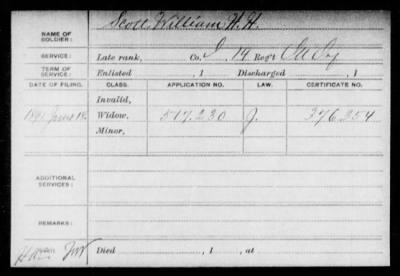 NAME OF SOLDIER: Scott, William H. H.
SERVICE: Late rank, Co. I, 14 Reg't
TERM OF SERVICE: Enlisted , 1 Discharged , 1
DATE OF FILING. CLASS. APPLICATION NO. LAW. CERTIFICATE NO.
Invalid,
1891 June 18 Widow, 517.230 J. 376.254
Minor,
ADDITIONAL SERVICES:
REMARKS:
Died , 1 , at